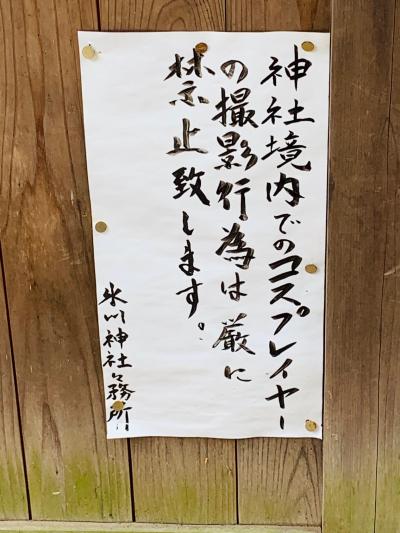 神社境内でのコスプレイヤー
の撮影行為は厳に
禁止致します。
氷川神社々務所